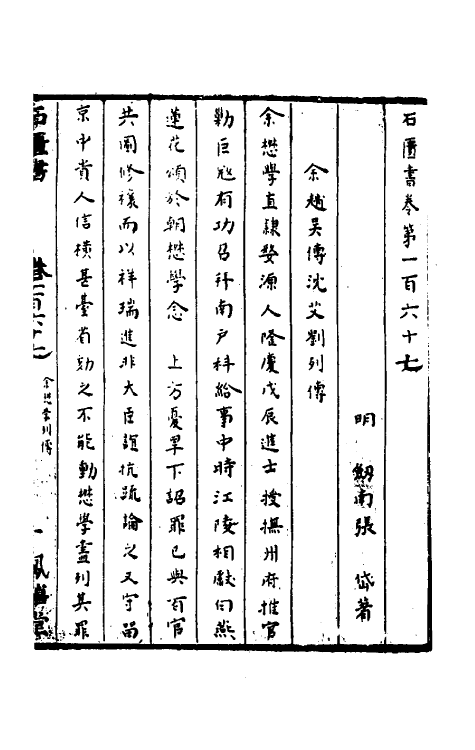 石匱書卷第一百六十七
明 劔南張 岱著
余趙吴傅沈艾劉列傳
余懋學直隸婺源人隆慶戊辰進士授撫州府推官
勦巨寇有功召拜南户科給事中時江陵相獻白燕
蓮花頌於朝懋學念 上方憂旱下詔罪已與百官
共圖修禳而以祥瑞進非大臣誼抗疏論之又守留
京中貴人信横甚臺省劾之不能動懋學盡列其罪
石匱書 卷一百六十七 余懋學列傳 一 鳳嬉堂